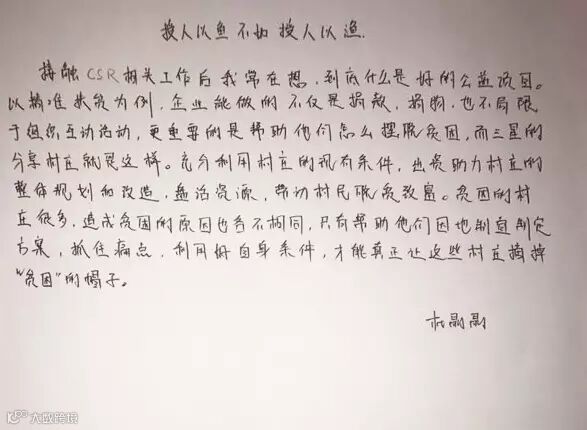 授人以鱼不如授人以渔.
接触CSR相关工作后我常在想,到底什么是好的公益项目。
以精准扶贫为例,企业能做的不仅是捐款,捐物,也不局限
于组织互动活动,更重要的是帮助他们怎么摆脱贫困,而三星的
分享村庄就是这样。充分利用村庄的现有条件,出资助力村庄的
整体规划和改造,盘活资源,带动村民脱贫致富。贫困的村
庄很多,造成贫困的原因也各不相同,只有帮助他们因地制宜制定
方案,抓住痛点,利用好自身条件,才能真正让这些村庄摘掉
“贫困”的帽子。
杜晶晶
大数跨境